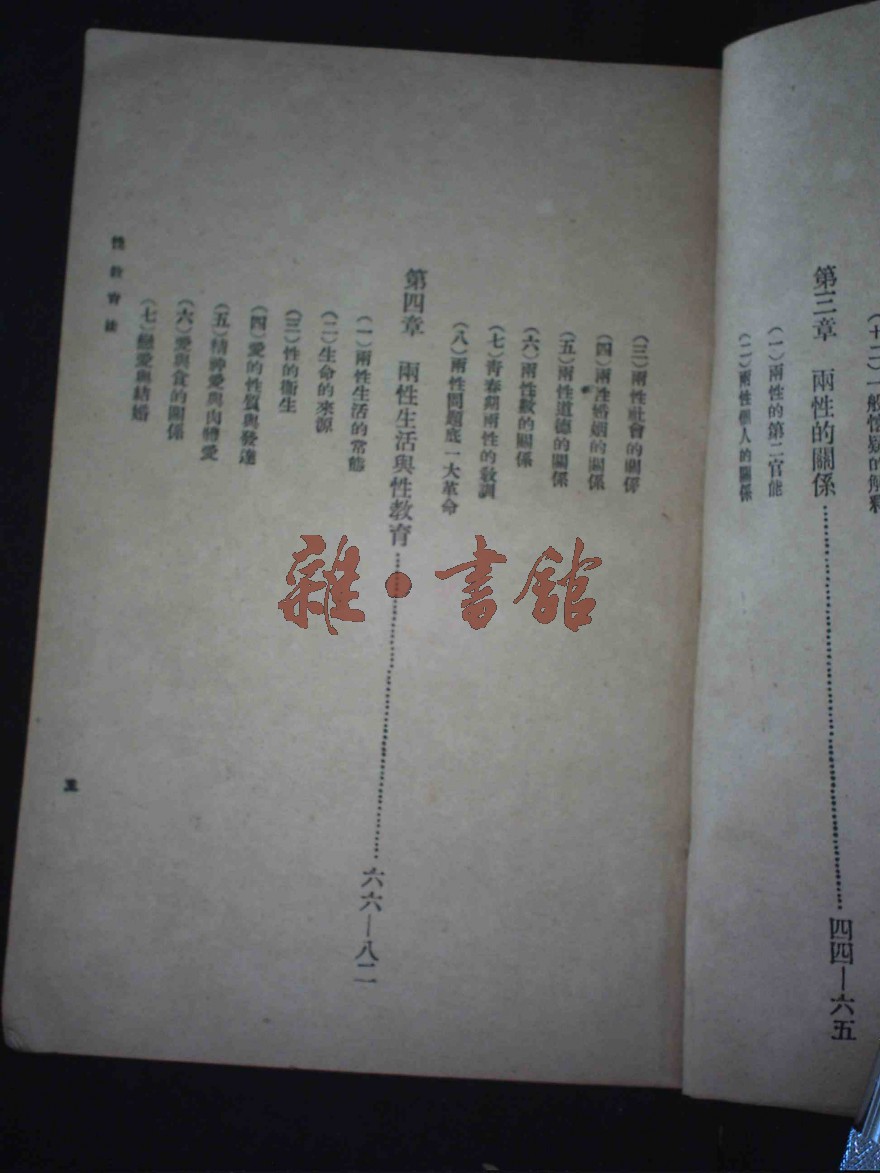 (十二)一般懷疑的解釋
第三章　兩性的關係……四四—六五
(一)兩性的第二官能
(二)兩性個人的關係
(三)兩性社會的關係
(四)兩性婚姻的關係
(五)兩性道德的關係
(六)兩性數的關係
(七)青春期兩性的敎訓
(八)兩性問題底一大革命
第四章　兩性生活與性敎育……六六—八二
(一)兩性生活的常態
(二)生命的來源
(三)性的衞生
(四)愛的性質與發達
(五)精神愛與肉體愛
(六)愛與食的關係
(七)戀愛與結婚
性敎育法
五
雜•書館